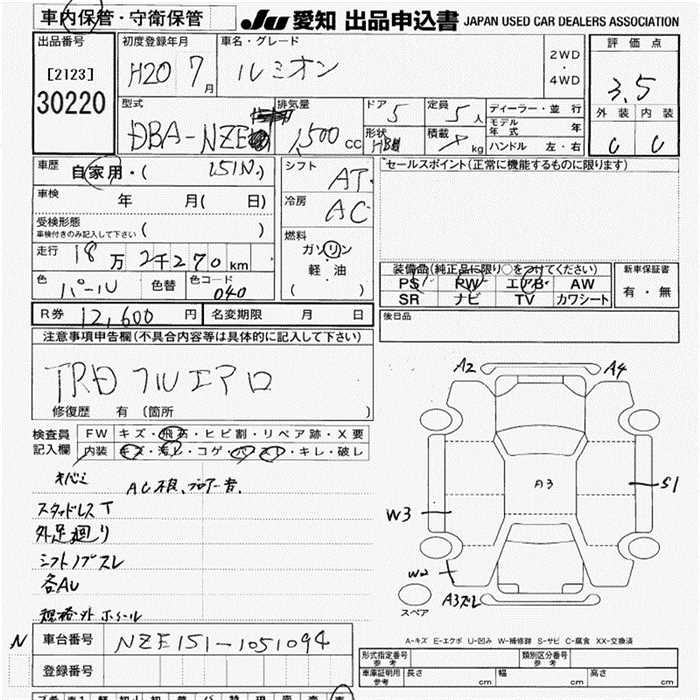 車内保管・守衛保管
JU 愛知 出品申込書 JAPAN USED CAR DEALERS ASSOCIATION
出品番号
[2123]
30220
初度登録年月
H20 7月
車名・グレード
ルミオン
2WD
・
4WD
評価点
3.5
外装 内装
C C
型式
DBA-NZE
排気量
1,500 cc
ドア 5
定員 5人
形状
積載 kg
ディーラー・並行
モデル年式 年
ハンドル 左・右
車歴
自家用・( 151N )
車検
年 月( 日)
受検形態
車検付きのみ記入して下さい ( )
走行 18万2千270km
色 パール 色替 色コード 040
シフト AT
冷房 AC
燃料
ガソリン
軽油
( )
セールスポイント(正常に機能するものに限ります)
装備品(純正品に限り○をつけてください)
PS PW エアB AW
SR ナビ TV カワシート
新車保証書
有・無
後日品
R券 12,600円 名変期限 月 日
注意事項申告欄(不具合内容等は具体的に記入して下さい)
TRD フルエアロ
修復歴 有 (箇所 )
検査員
記入欄
FW キズ・飛石・ヒビ割・リペア跡・X要
内装 キズ・汚レ・コゲ・パンスレ・キレ・破レ
AC不良、ブロアー音、
スタッドレスT
外足廻り
シフトノブスレ
各AU
規格外ホイール
A2 A4
A3
S1
W3
W2
A3スレ
スペア
A-キズ E-エクボ U-凹み W-補修跡 S-サビ C-腐食 XX-交換済
N
車台番号 NZE151-1051094
登録番号
形式指定番号 参考
類別区分番号 参考
車庫証明用 参考 長さ cm 幅 cm 高さ cm